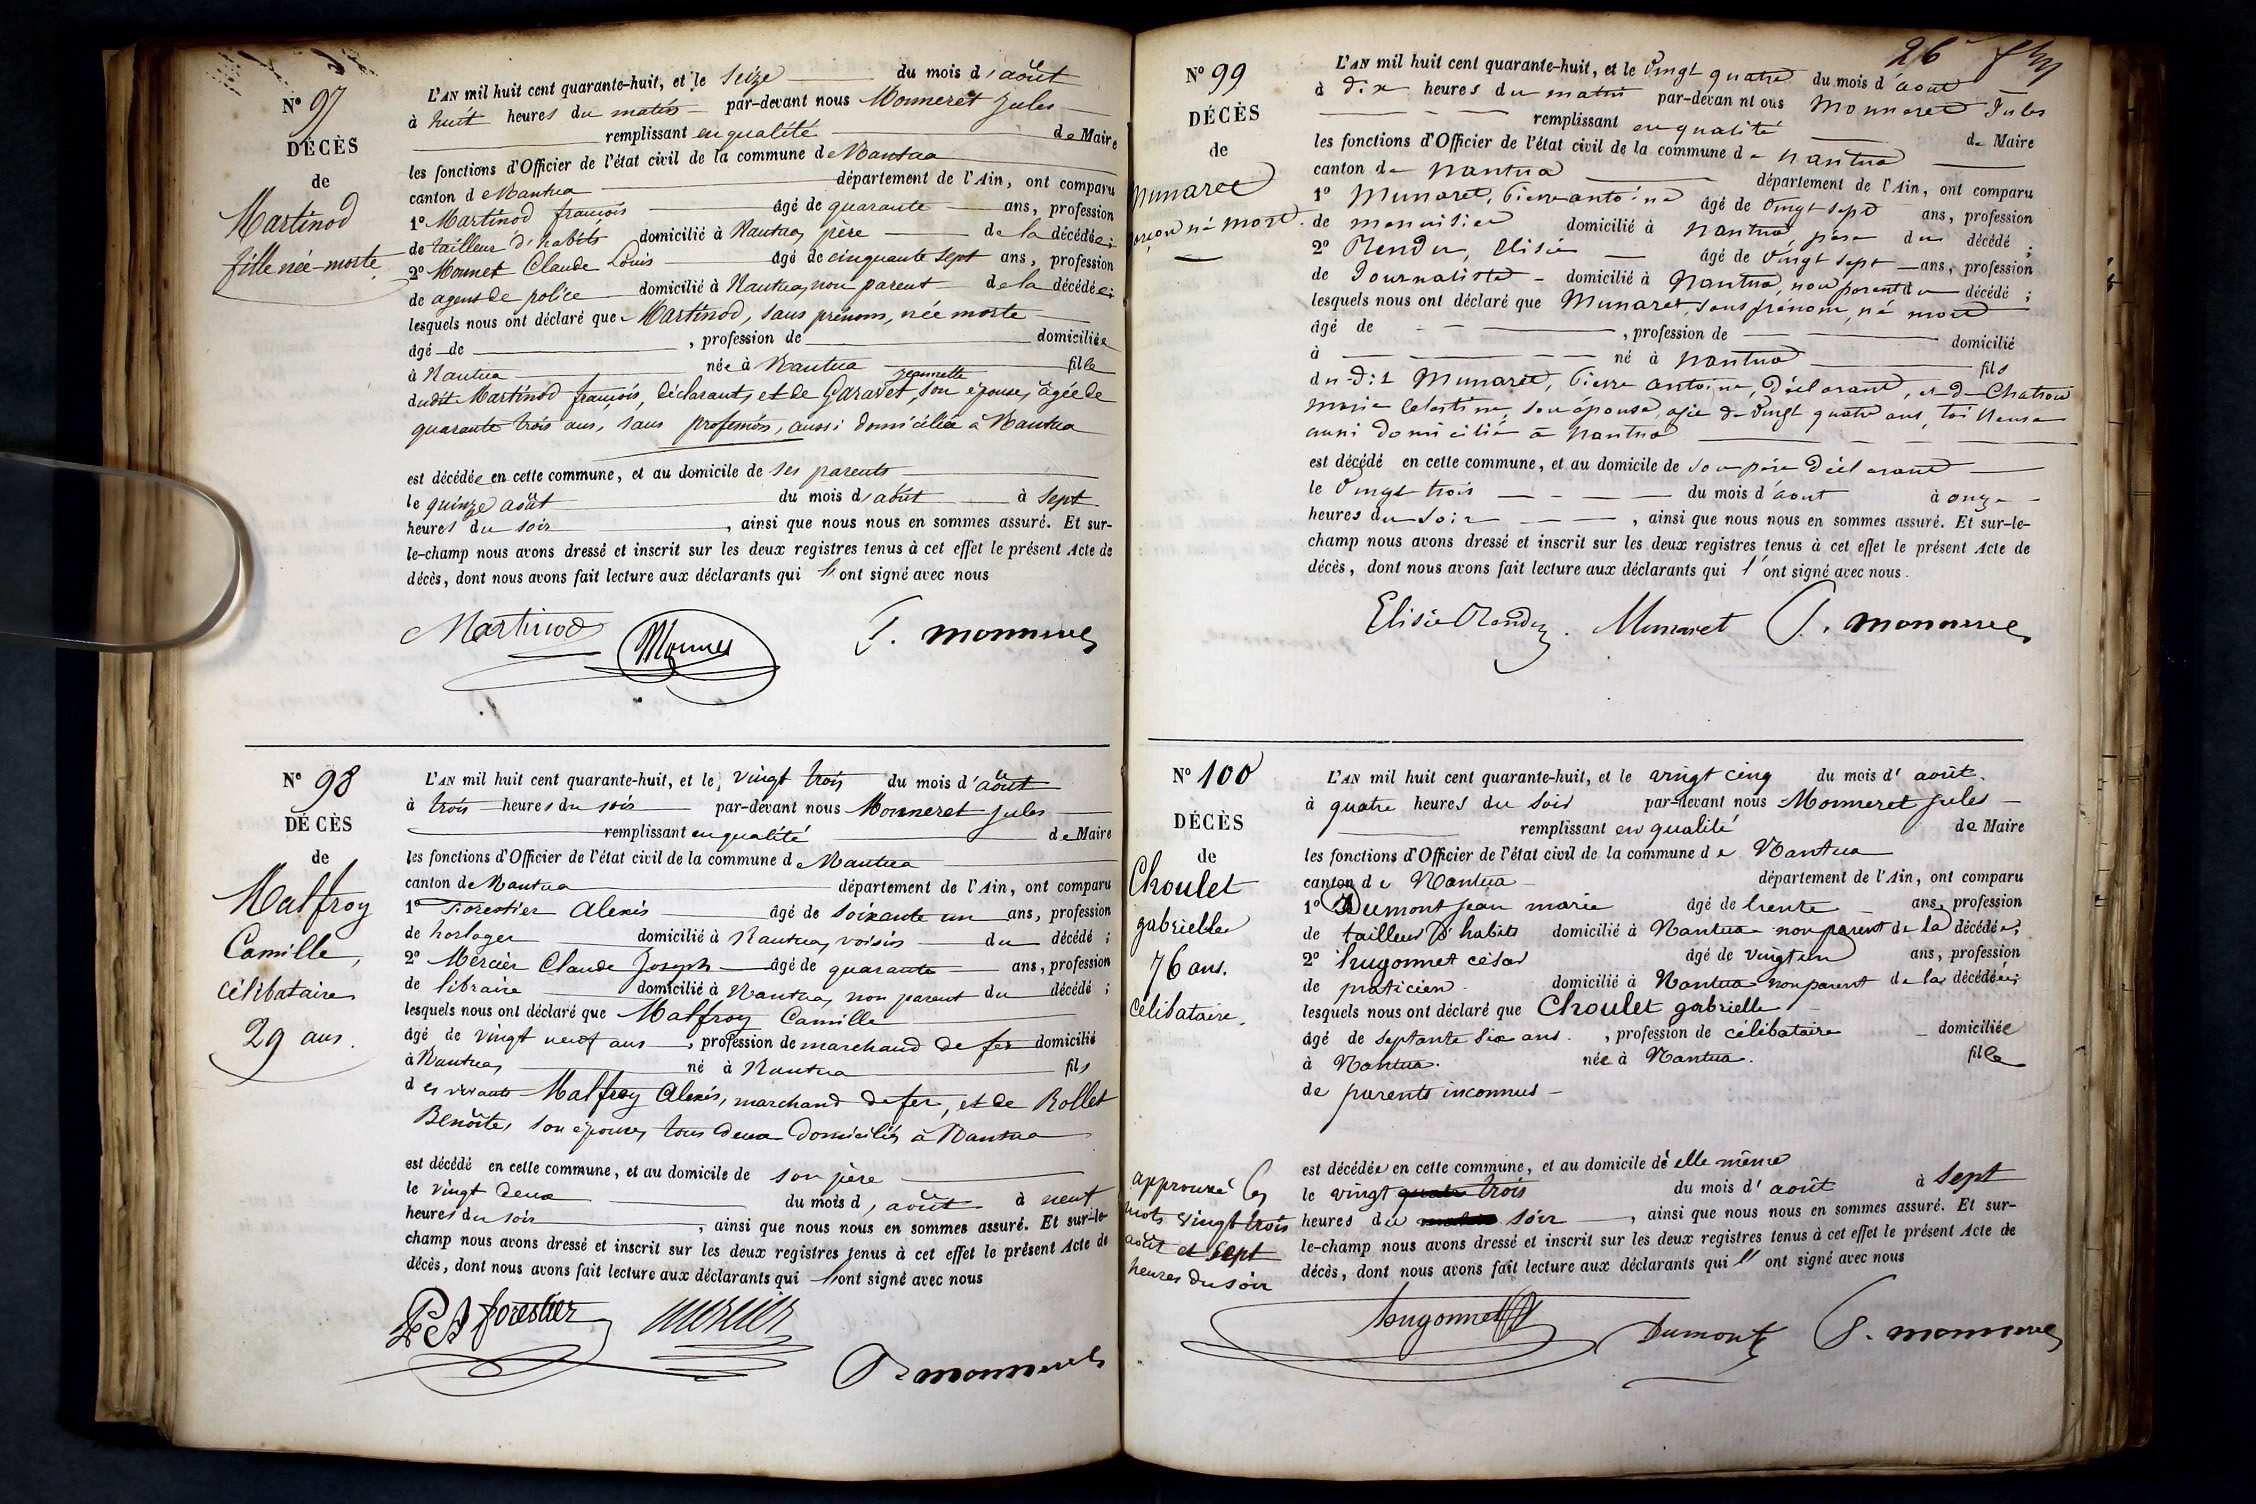 N° 97
DÉCÈS
de
Martinod
fille née-morte
L'AN mil huit cent quarante-huit, et le seize du mois d'août
à huit heures du matin par-devant nous Monneret Jules
remplissant en qualité de Maire
les fonctions d'Officier de l'état civil de la commune de Nantua
canton de Nantua département de l'Ain, ont comparu
1° Martinod françois âgé de quarante ans, profession
de tailleur d'habits domicilié à Nantua, père de la décédée;
2° Monnet Claude Louis âgé de cinquante sept ans, profession
de agent de police domicilié à Nantua, non parent de la décédée;
lesquels nous ont déclaré que Martinod, sans prénom, née morte
âgé de , profession de domiciliée
à Nantua née à Nantua fille
dudit Martinod françois, déclarant, et de Garavet jeannette, son épouse, âgée de
quarante trois ans, sans profession, aussi domiciliée à Nantua
est décédée en cette commune, et au domicile de ses parents
le quinze août du mois d'août à sept
heures du soir , ainsi que nous nous en sommes assuré. Et sur-
le-champ nous avons dressé et inscrit sur les deux registres tenus à cet effet le présent Acte de
décès, dont nous avons fait lecture aux déclarants qui l'ont signé avec nous
Martinod Monnet J. Monneret
N° 98
DÉCÈS
de
Malfroy
Camille,
célibataire
29 ans.
L'AN mil huit cent quarante-huit, et le vingt trois du mois d'août
à trois heures du soir par-devant nous Monneret Jules
remplissant en qualité de Maire
les fonctions d'Officier de l'état civil de la commune de Nantua
canton de Nantua département de l'Ain, ont comparu
1° Forestier Alexis âgé de soixante un ans, profession
de horloger domicilié à Nantua, voisin du décédé;
2° Mercier Claude Joseph âgé de quarante ans, profession
de libraire domicilié à Nantua, non parent du décédé;
lesquels nous ont déclaré que Malfroy Camille
âgé de vingt neuf ans, profession de marchand de fer domicilié
à Nantua, né à Nantua fils
des vivants Malfroy Alexis, marchand de fer, et de Rollet
Benoîte, son épouse, tous deux domiciliés à Nantua
est décédé en cette commune, et au domicile de son père
le vingt deux du mois d'août à neuf
heures du soir , ainsi que nous nous en sommes assuré. Et sur-le-
champ nous avons dressé et inscrit sur les deux registres tenus à cet effet le présent Acte de
décès, dont nous avons fait lecture aux déclarants qui l'ont signé avec nous
forestier Mercier J. Monneret
26
N° 99
DÉCÈS
de
Munaret
garçon né mort.
L'AN mil huit cent quarante-huit, et le vingt quatre du mois d'août
à dix heures du matin par-devant nous Monneret Jules
remplissant en qualité de Maire
les fonctions d'Officier de l'état civil de la commune de Nantua
canton de Nantua département de l'Ain, ont comparu
1° Munaret, Pierre antoine âgé de vingt sept ans, profession
de menuisier domicilié à Nantua père du décédé;
2° Rendu, Elisée âgé de vingt sept ans, profession
de Journaliste domicilié à Nantua, non parent du décédé;
lesquels nous ont déclaré que Munaret, sans prénom, né mort
âgé de , profession de domicilié
à né à Nantua fils
du-dit Munaret, Pierre antoine, déclarant, et de Chatron
marie Celestine, son épouse, agée de vingt quatre ans, tailleuse
aussi domicilié à Nantua
est décédé en cette commune, et au domicile de son père déclarant
le vingt trois du mois d'aout à onze
heures du soir , ainsi que nous nous en sommes assuré. Et sur-le-
champ nous avons dressé et inscrit sur les deux registres tenus à cet effet le présent Acte de
décès, dont nous avons fait lecture aux déclarants qui l'ont signé avec nous.
Elisée Rendu. Munaret J. Monneret
N° 100
DÉCÈS
de
Choulet
gabrielle
76 ans.
célibataire.
L'AN mil huit cent quarante-huit, et le vingt cinq du mois d'août.
à quatre heures du soir par-devant nous Monneret Jules
remplissant en qualité de Maire
les fonctions d'Officier de l'état civil de la commune de Nantua
canton de Nantua département de l'Ain, ont comparu
1° Dumont jean marie âgé de trente ans, profession
de tailleur d'habits domicilié à Nantua non parent de la décédée;
2° hugonnet césar âgé de vingt un ans, profession
de praticien domicilié à Nantua non parent de la décédée;
lesquels nous ont déclaré que Choulet gabrielle
âgé de septante six ans. , profession de célibataire domiciliée
à Nantua. née à Nantua. fille
de parents inconnus
est décédée en cette commune, et au domicile d'elle même
le vingt quatre trois du mois d'août à sept
heures du matin soir , ainsi que nous nous en sommes assuré. Et sur-
le-champ nous avons dressé et inscrit sur les deux registres tenus à cet effet le présent Acte de
décès, dont nous avons fait lecture aux déclarants qui l'ont signé avec nous
approuvé les
mots vingt trois
août et sept
heures du soir
hugonnet Dumont J. Monneret